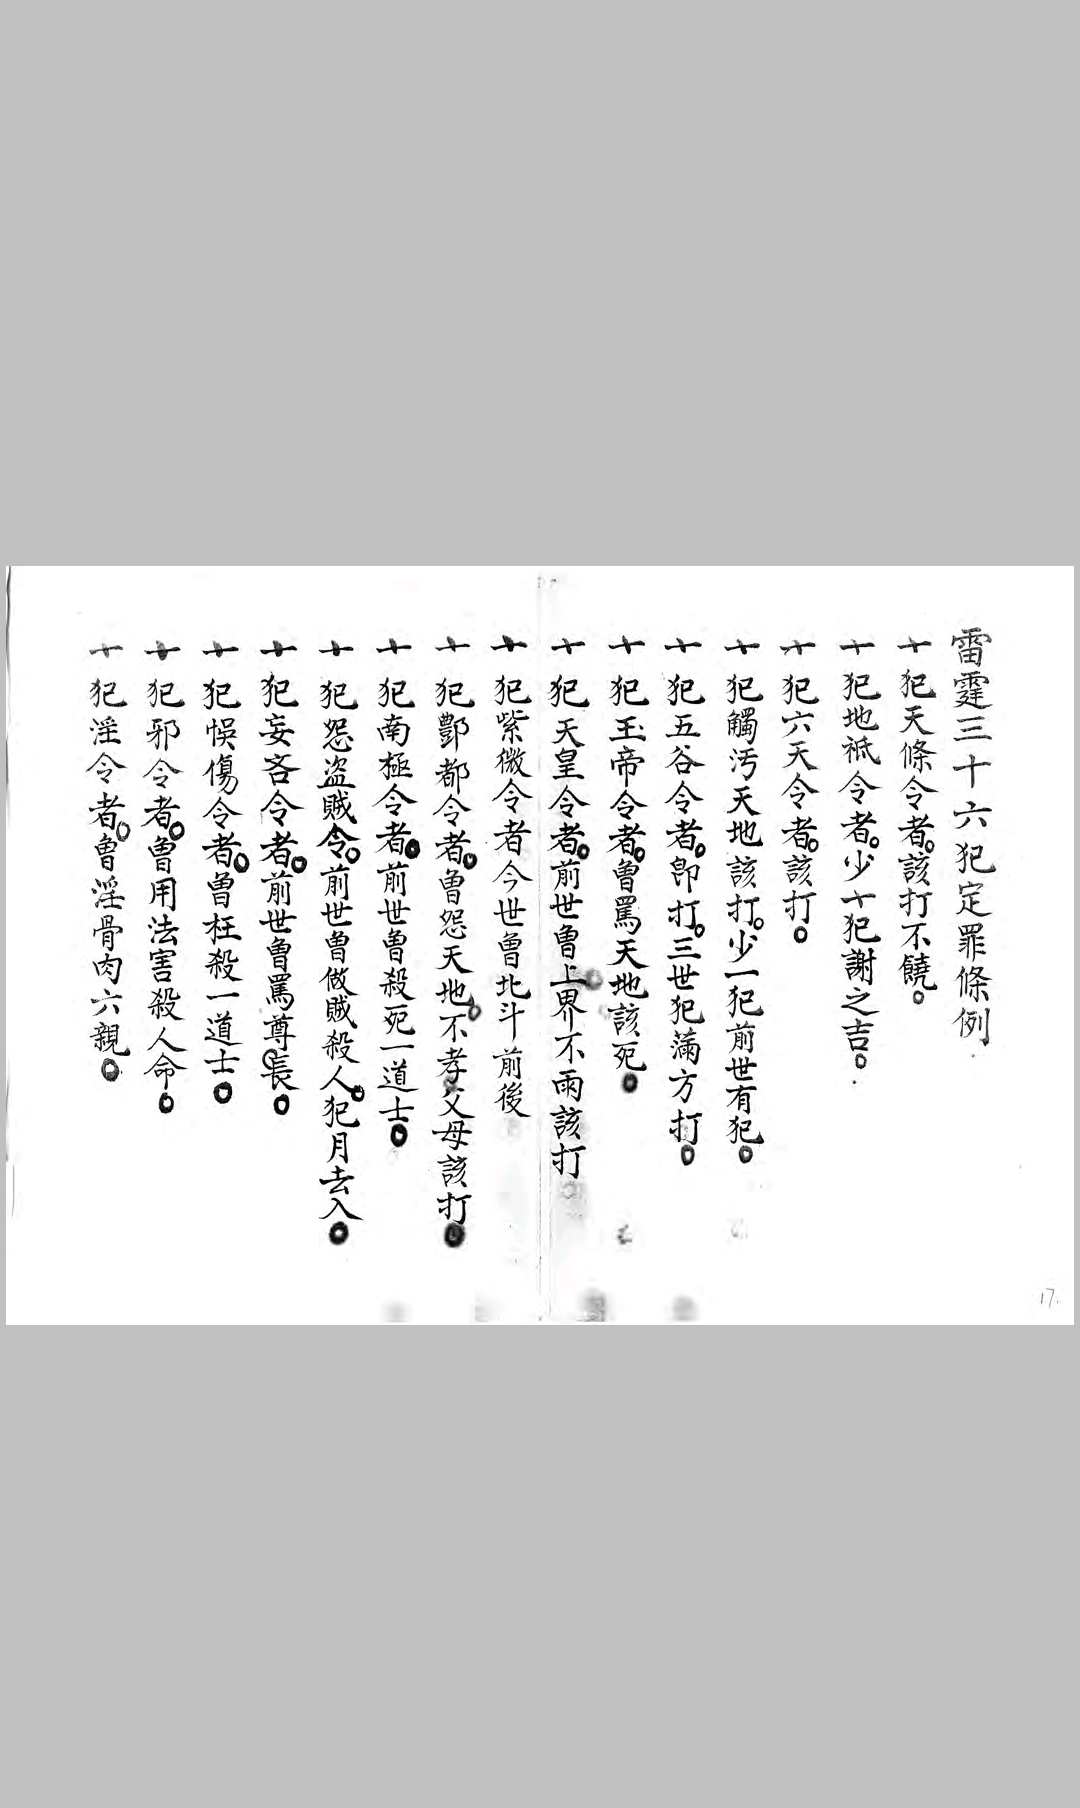 雷霆三十六犯定罪條例
十犯天條令者。該打不饒。
十犯地祗令者。少十犯謝之吉。
十犯六天令者。該打。
十犯觸汚天地該打。少一犯前世有犯。
十犯五谷令者。卽打。三世犯滿方打。
十犯玉帝令者。曾罵天地該死。
十犯天皇令者。前世曾上界不雨該打
十犯紫微令者今世曾北斗前後
十犯酆都令者。曾怨天地不孝父母該打。
十犯南極令者。前世曾殺死一道士。
十犯怨盜賊令。前世曾做賊殺人。犯月去入。
十犯妄吝令者。前世曾罵尊長。
十犯悞傷令者。曾枉殺一道士。
十犯邪令者。曾用法害殺人命。
十犯淫令者。曾淫骨肉六親。
17.